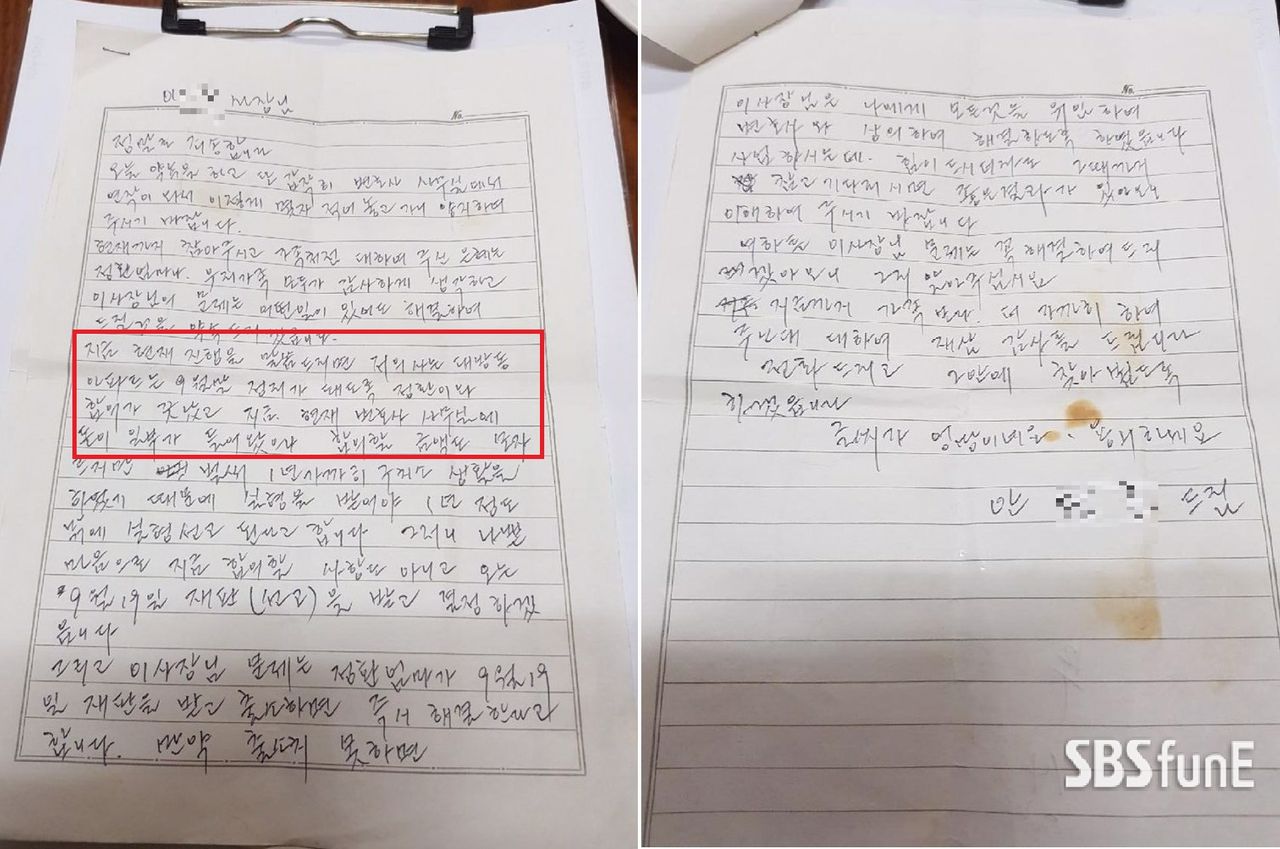 이 사장님
No.
정말로 죄송합니다
오늘 약속을 하고 또 갑작히 변호사 사무실에서
연락이 와서 이렇게 몇자 적어 놓고 가니 양지하여
주시기 바랍니다.
현재까지 참아주시고 가족처럼 대하여 주신 은혜는
정환엄마나 우리가족 모두가 감사하게 생각하고
이사장님의 문제는 어떤일이 있어도 해결하여
드릴것을 약속드리겠습니다.
지금 현재 진행을 말씀드리면 저의 사는 대방동
아파트는 9월말 정리가 돼도록 정환이와
합의가 끗났고 지금 현재 변호사 사무실에
돈이 일부가 들어왔으나 합의할 금액도 모자
르지만 벌써 1년가까히 구치소 생활을
하였기 때문에 실형을 받어야 1년 정도
밖에 실형선고 된다고 합니다 그러니 나쁜
마음으로 지금 합의할 사항도 아니고 오는
9월19일 재판(선고)을 받고 결정하겠
읍니다
그리고 이사장님 문제는 정환엄마가 9월19
일 재판을 받고 출소하면 즉시 해결한다고
합니다. 만약 출소치 못하면
No.
이사장님은 나에게 모든것을 위임하여
변호사와 상의하여 해결하도록 하였읍니다
사업하시는데 힘이 드시더라도 그때까지
참고 기다리시면 좋은결과가 있아오니
이해하여 주시기 바랍니다
여하튼 이사장님 문제는 꼭 해결하여 드리
겠아오니 그리 알아주십시요
지금까지 가족보다 더 가까히 하여
주신데 대하여 재삼 감사를 드립니다
전화드리고 오후에 찾아뵙도록
하겠읍니다
글씨가 엉망이네요. 용서하세요
안 드림
SBS funE